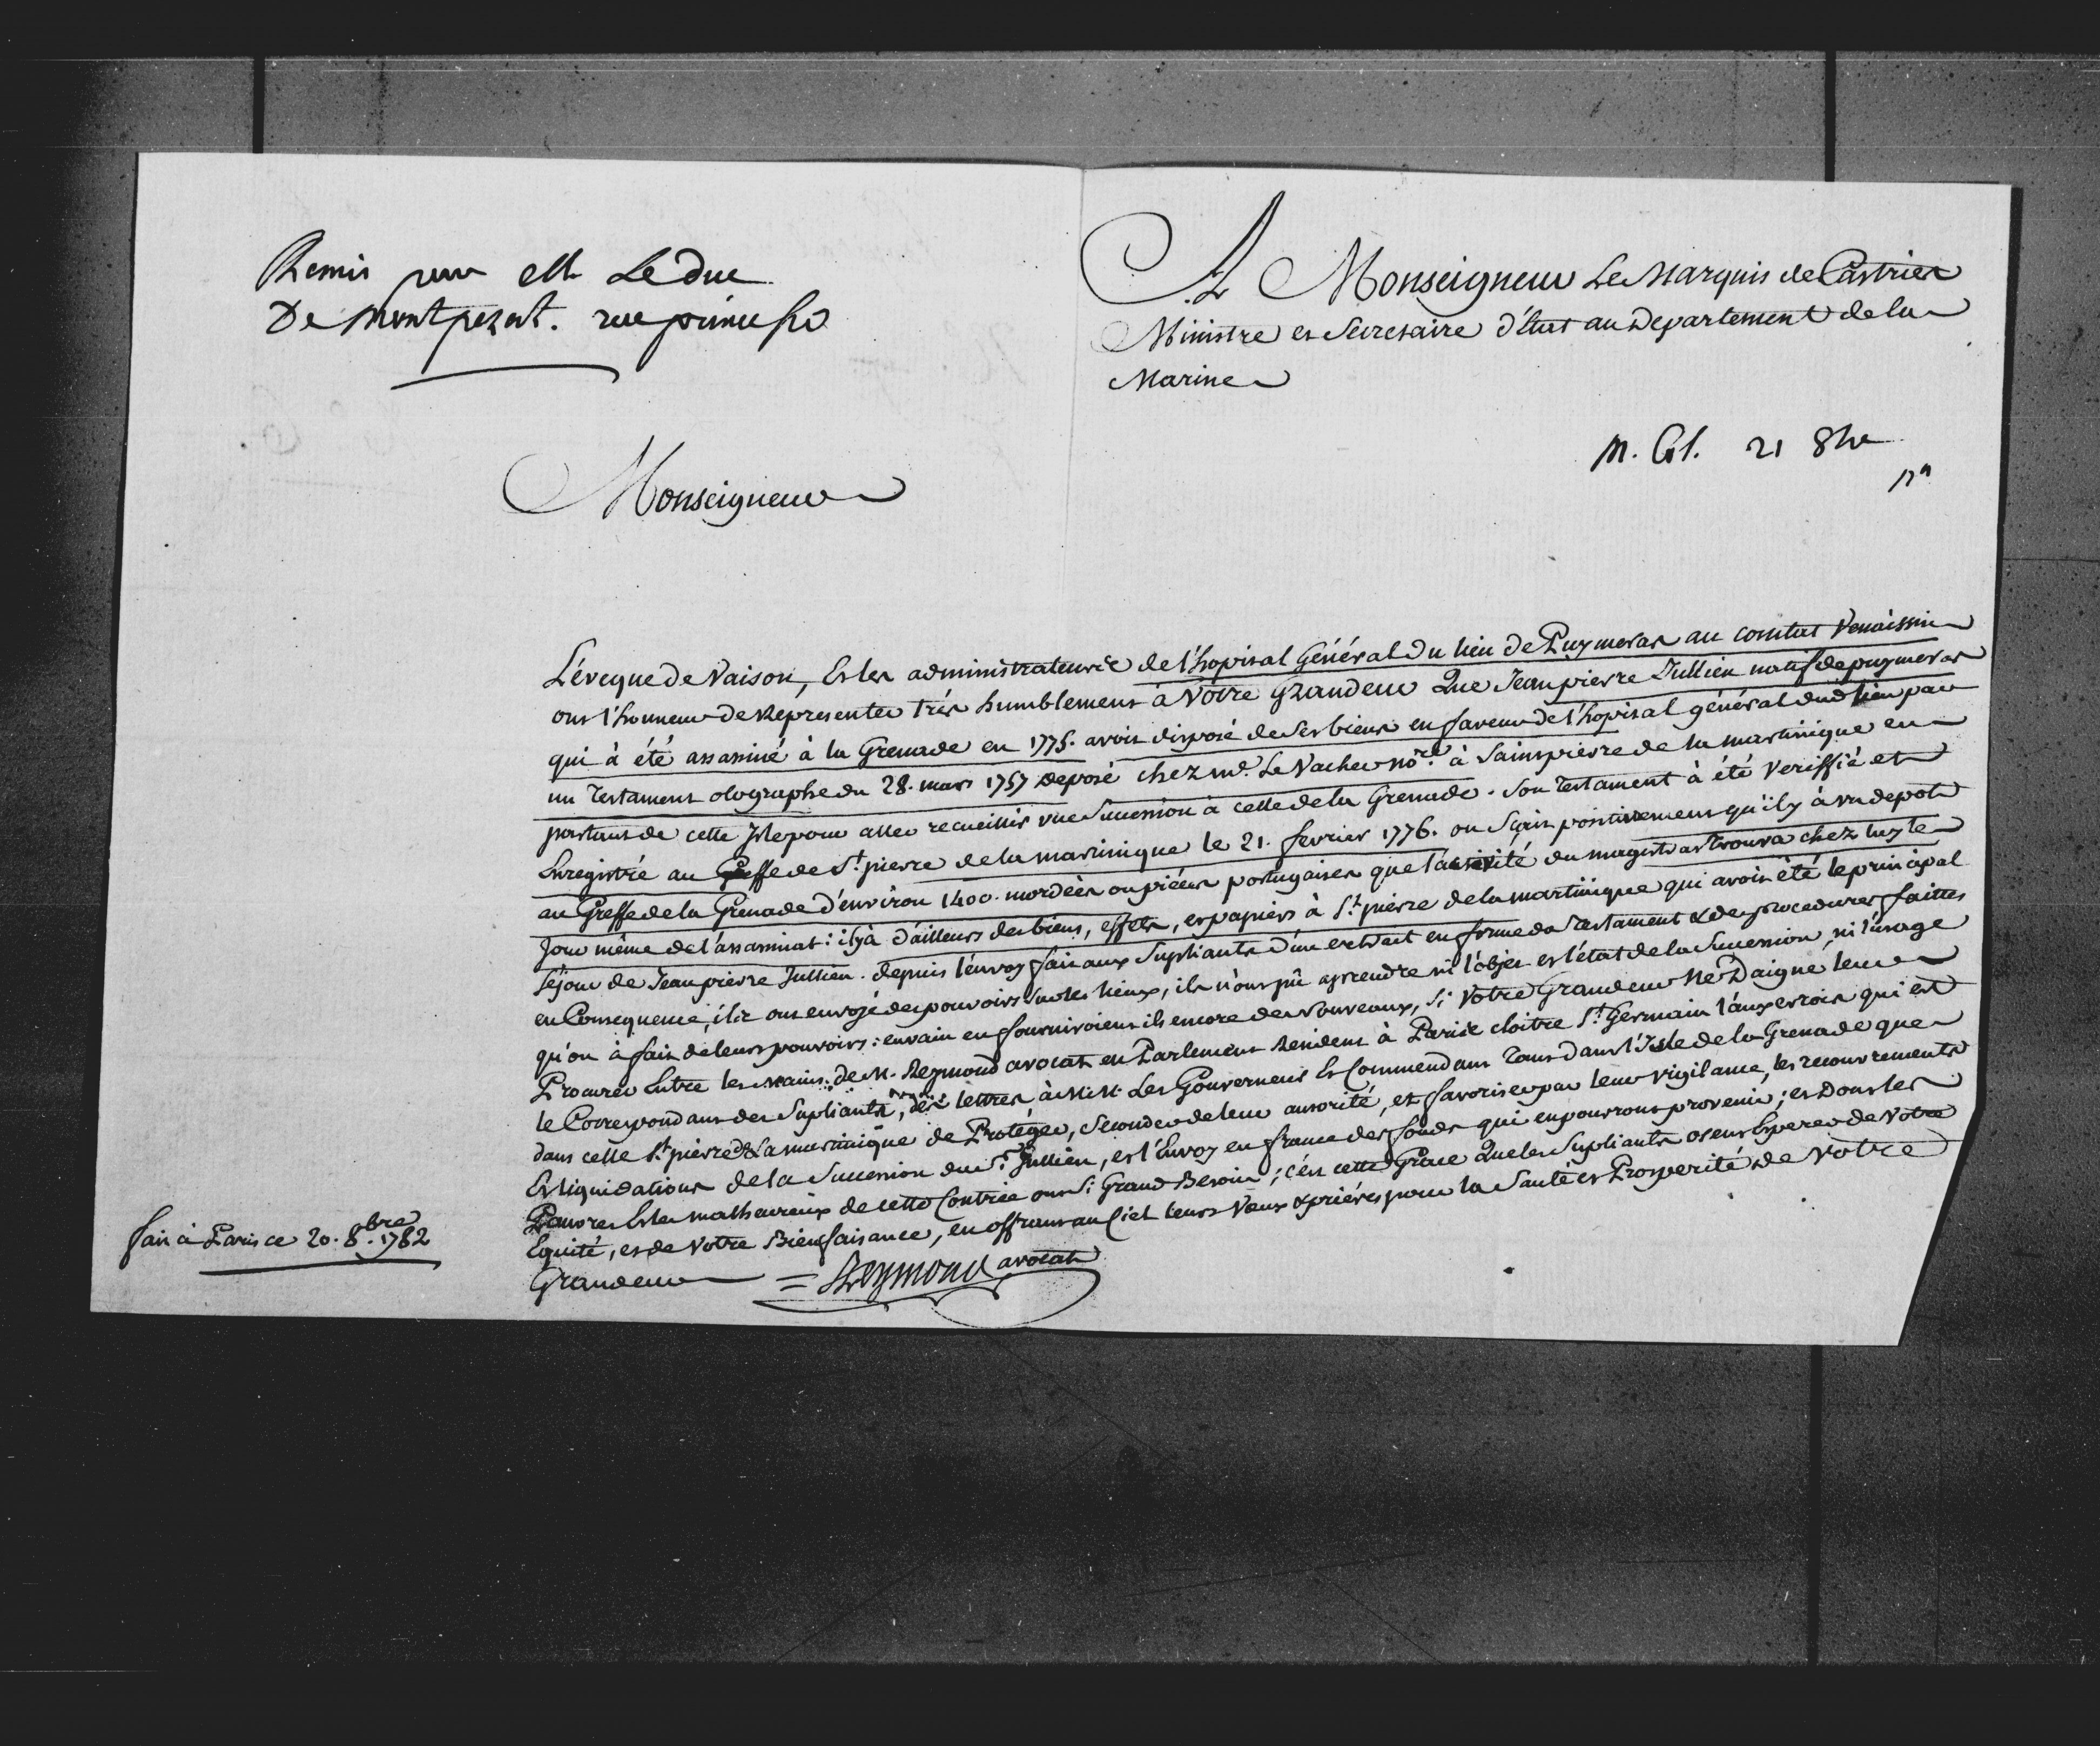 Remis par M. Le Duc
De Montpezat.
A Monseigneur Le Marquis de Castries
Ministre et Secretaire d'Etat au Departement de la
Marine
M. 21 8bre
Monseigneur
L'éveque de Vaison, Et les administrateurs de l'hopital Général du lieu de Puymeras au comtat Venaissin
ont l'honneur de Representer très humblement à Votre Grandeur Que Jean pierre Jullien natif de puymeras
qui à été assassiné à la Grenade en 1775. avoit disposé de Ses biens en faveur de l'hopital général dud. lieu par
un Testament olographe du 28. mars 1757 deposé chez me. Le Vacher nore. à Saint pierre de la martinique en
partant de cette Isle pour aller recueillir une Succession à celle de la Grenade. Son Testament à été Veriffié et
Enregistré au Greffe de St. pierre de la martinique le 21. fevrier 1776. on Sçait positivement qu'il y à un depot
au Greffe de la Grenade d'environ 1400. mordées ou pièces portugaises que l'activité du magistrat trouva chez luy le
Jour même de l'assassinat: il y à d'ailleurs des biens, effets, et papiers à St. pierre de la martinique qui avoit été le principal
Séjour de Jean pierre Jullien. depuis l'envoy fait aux Supliants d'un extrait en forme du Testament & des procedures faittes
en Consequence, ils ont envoyé des pouvoirs Sur les lieux, ils n'ont pû aprendre ni l'objet et l'état de la Succession, ni l'usage
qu'on à fait de leurs pouvoirs: envain en fourniroient ils encore de Nouveaux, Si Votre Grandeur Ne Daigne leur
Procurer Entre les mains de M. Reymond avocat en Parlement Resident à Paris cloitre St. Germain l'auxerrois qui est
le Correspondant des Supliants, des lettres à M.M. Les Gouverneurs Et Commendans Tant dans l'Isle de la Grenade que
dans celle St. pierre de La martinique de Protéger, Seconder de leur autorité, et favoriser par leur vigilance, les recouvrements
Et liquidations de la Succession du Sr. Jullien, et l'Envoy en france des fonds qui en pourront provenir; et Dont les
Pauvres Et les malheureux de cette Contrée ont Si Grand Besoin; c'est cette Grace Que les Supliants osent Esperer de Votre
Equité, et de Votre Bienfaisance, en offrant au Ciel leurs Vœux & prières pour la Santé et Prosperité de Votre
Grandeur = Reymond avocat
fait à Paris ce 20. 8.bre 1782